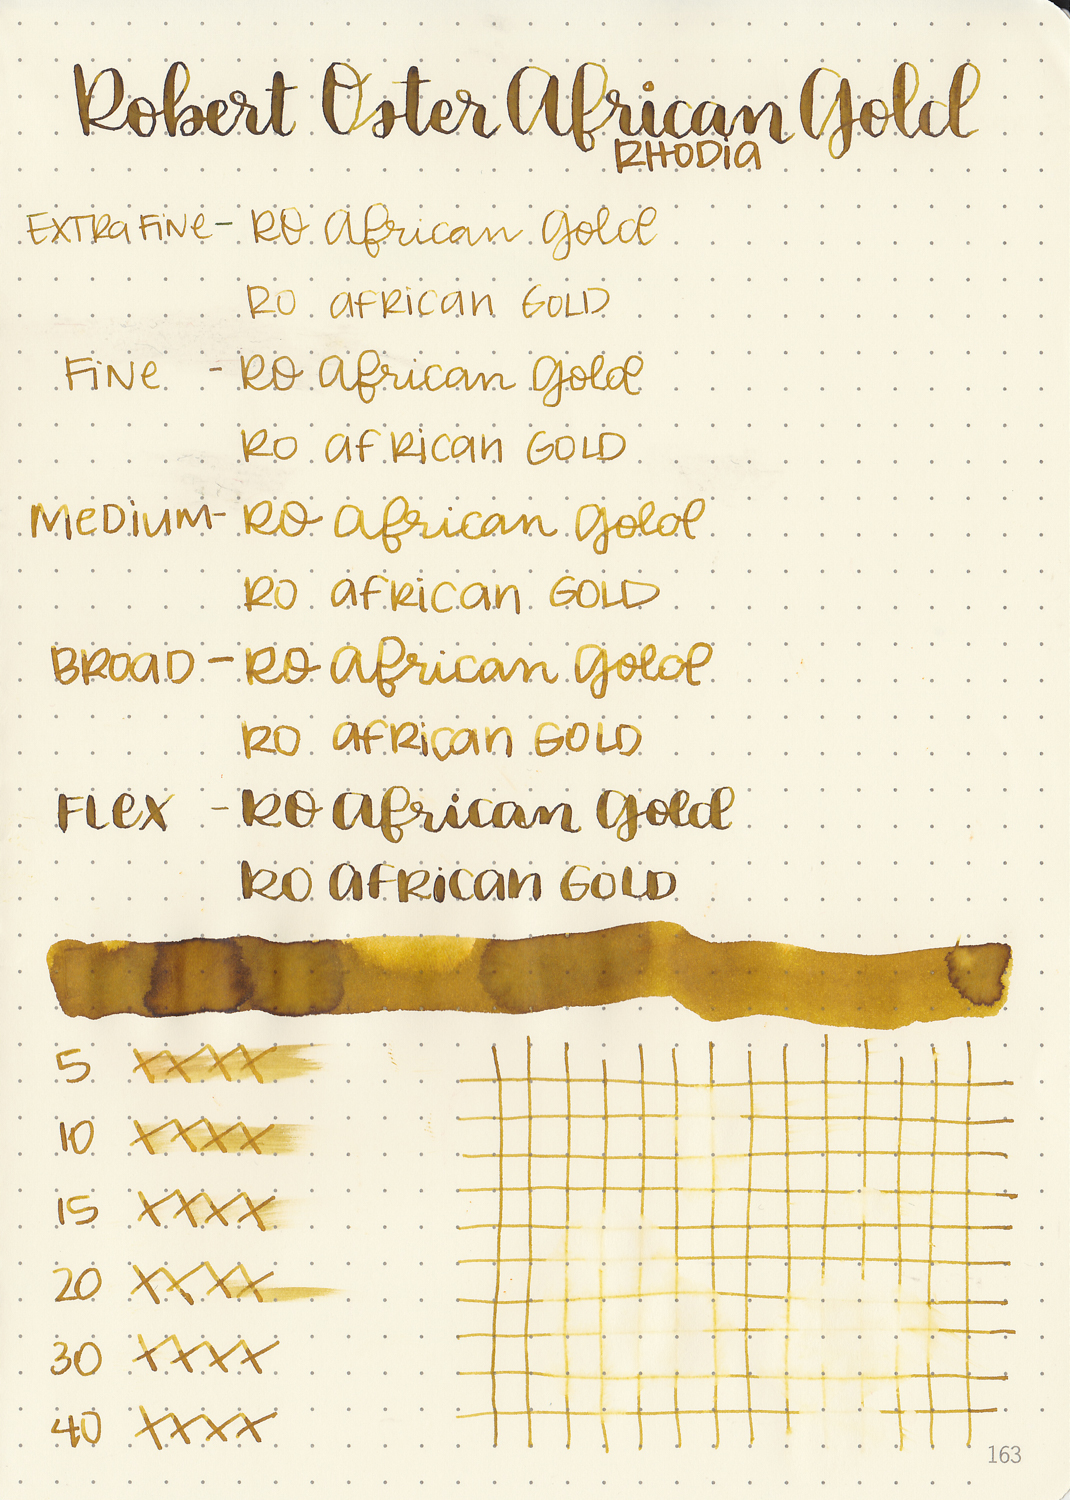 Robert Oster African Gold
RHODIA
EXTRA FINE - RO African Gold
RO AFRICAN GOLD
FINE - RO African Gold
RO AFRICAN GOLD
MEDIUM - RO African Gold
RO AFRICAN GOLD
BROAD - RO African Gold
RO AFRICAN GOLD
FLEX - RO African Gold
RO AFRICAN GOLD
5 XXXX
10 XXXX
15 XXXX
20 XXXX
30 XXXX
40 XXXX
163